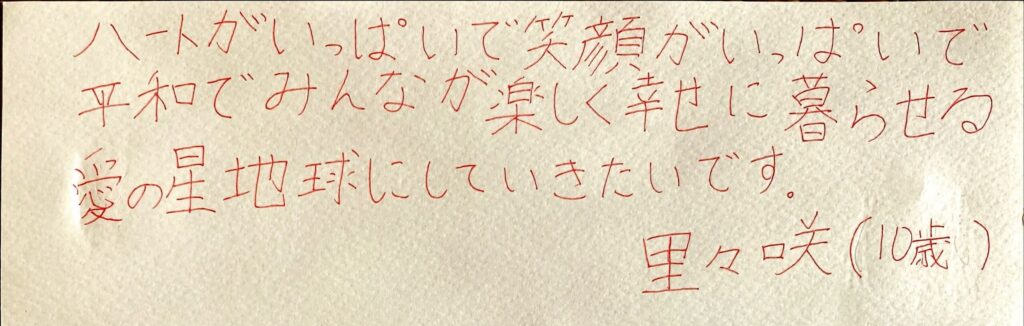 ハートがいっぱいで笑顔がいっぱいで
平和でみんなが楽しく幸せに暮らせる
愛の星地球にしていきたいです。
里々咲(10歳)